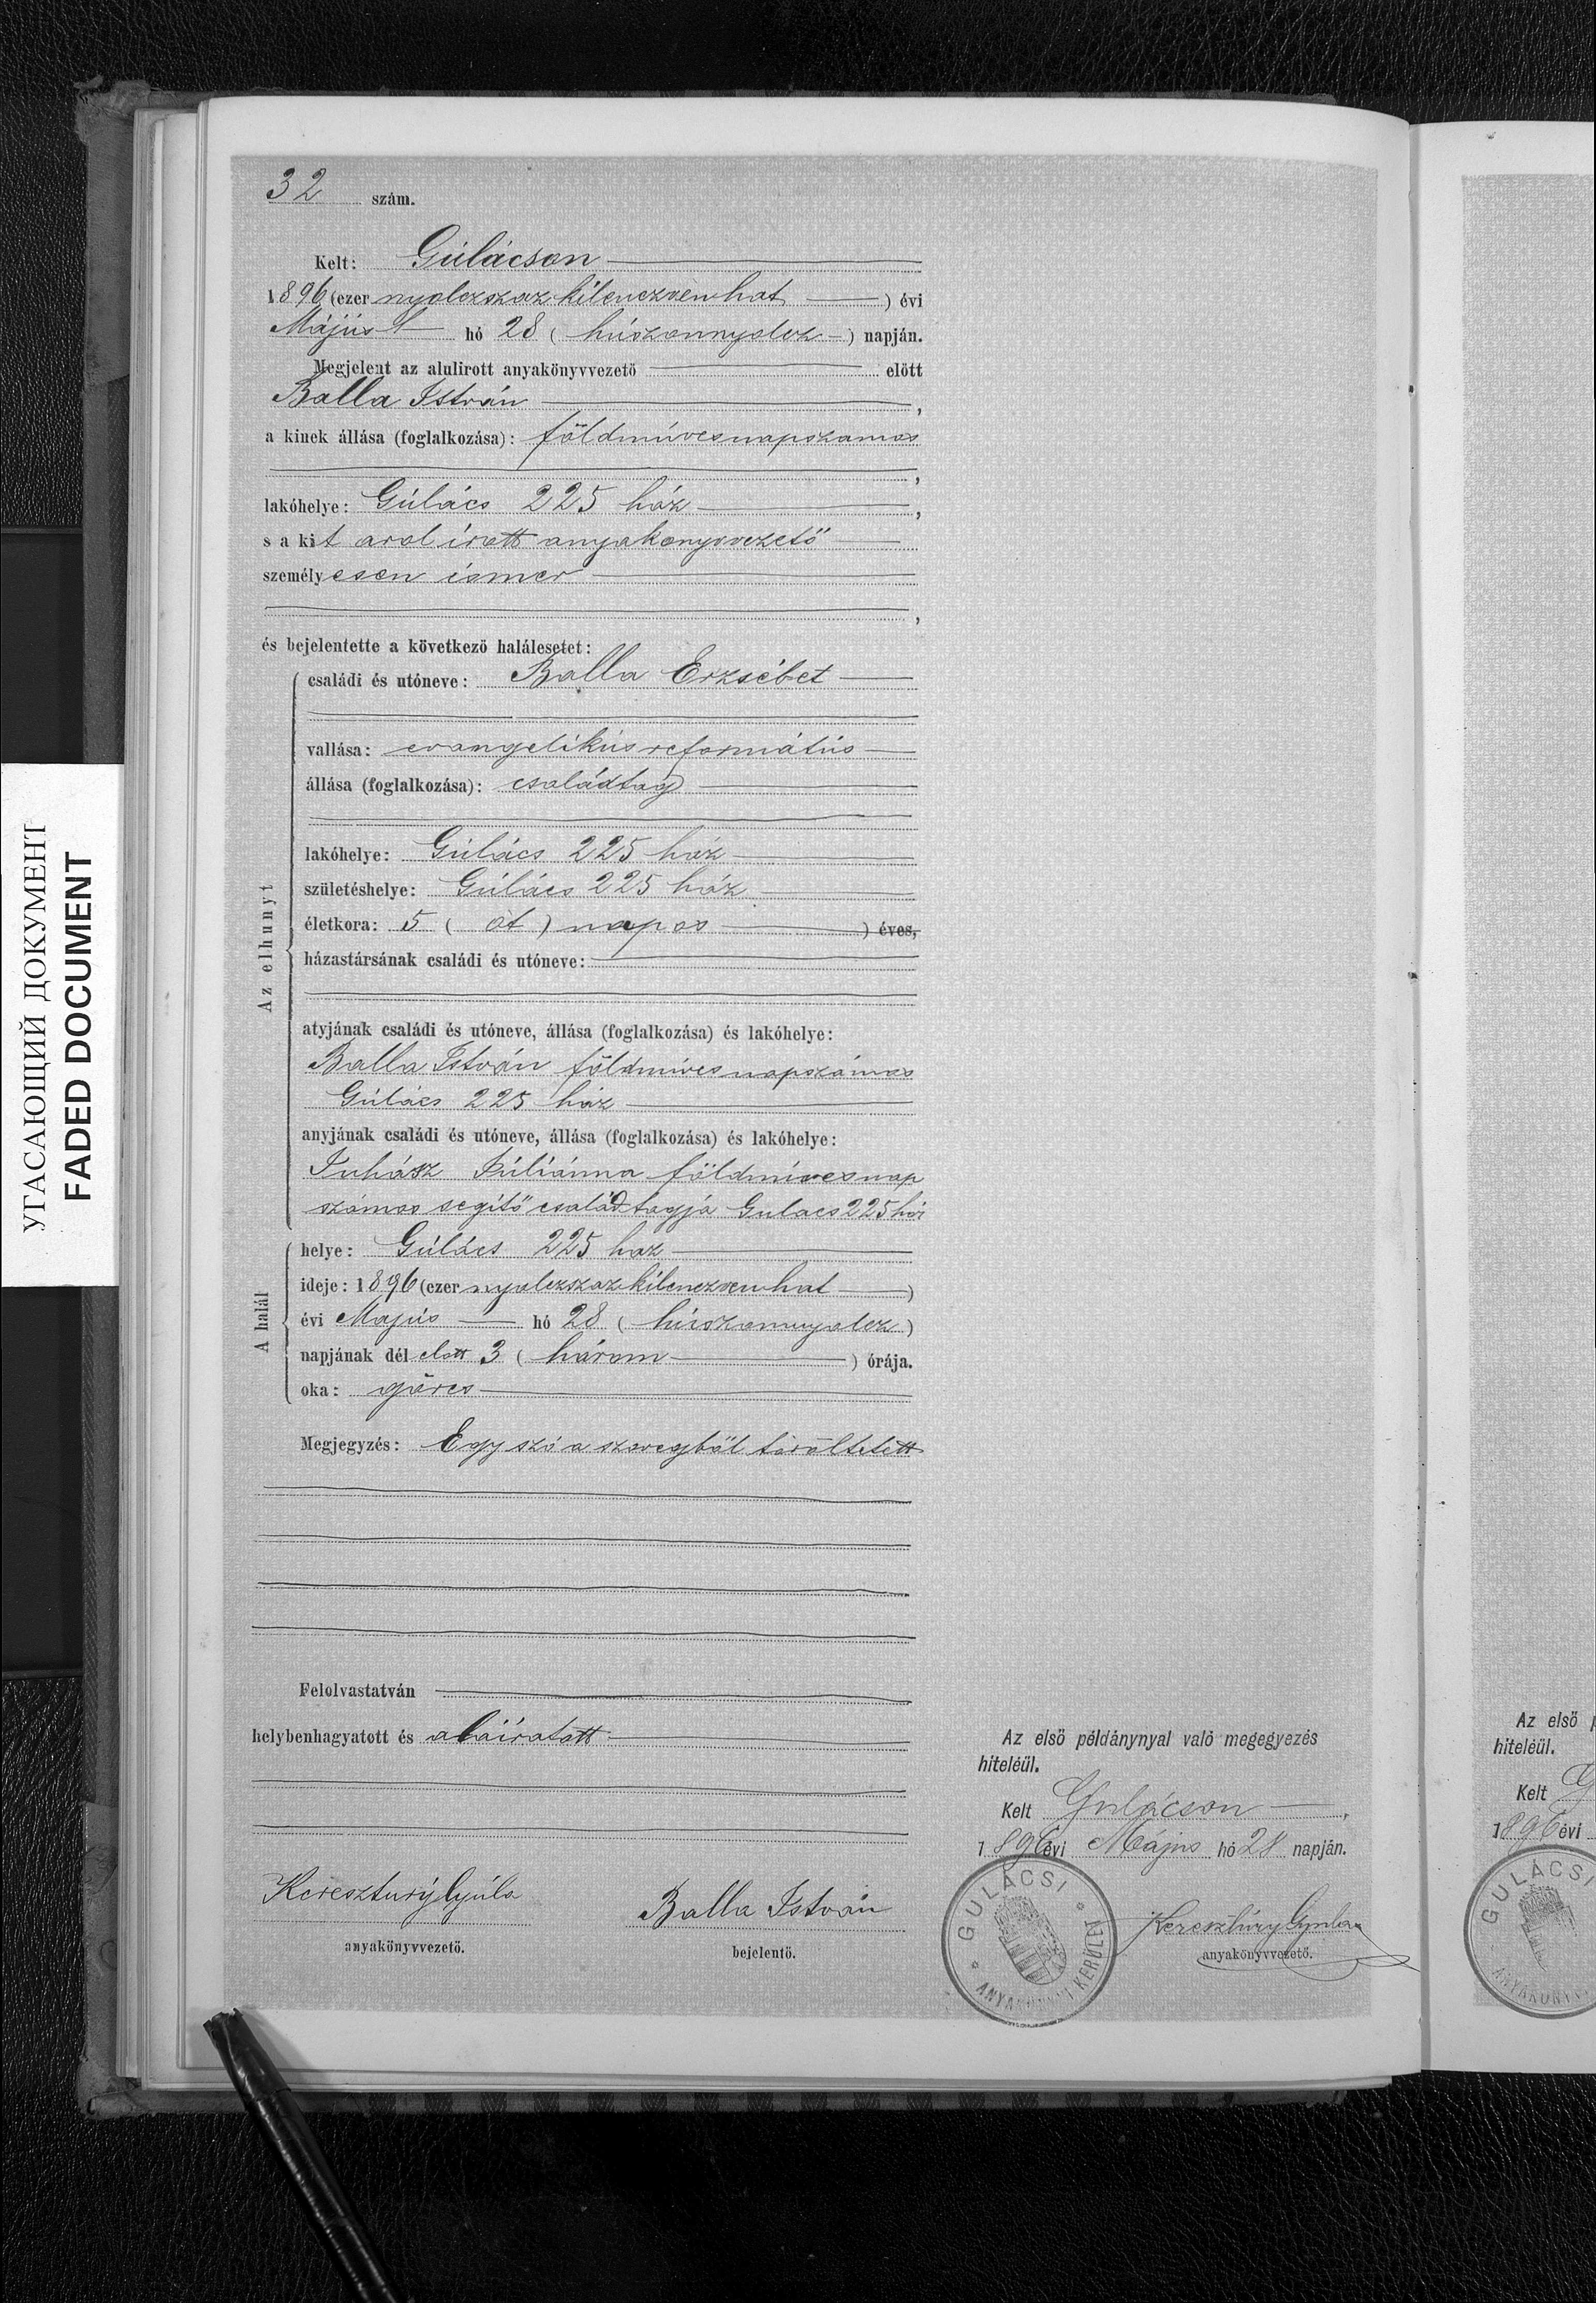 УГАСАЮЩИЙ ДОКУМЕНТ
FADED DOCUMENT
32 szám.
Kelt: Gúlácson
1896 (ezer nyolczszaz kilenczvenhat ) évi
Május hó 28 ( húszonnyolcz ) napján.
Megjelent az alulirott anyakönyvvezető előtt
Balla István ,
a kinek állása (foglalkozása): földmívesnapszamos
,
lakóhelye: Gúlács 225 ház ,
s a kit arol írott anyakonyvvezető
személyesen ismer
,
és bejelentette a következő halálesetet:
Az elhunyt
családi és utóneve: Balla Erzsébet
vallása: evangelikús református
állása (foglalkozása): családtag
lakóhelye: Gúlács 225 ház
születéshelye: Gúlács 225 ház
életkora: 5 ( öt ) napos ) éves,
házastársának családi és utóneve:
atyjának családi és utóneve, állása (foglalkozása) és lakóhelye:
Balla István földmíves napszámos
Gúlács 225 ház
anyjának családi és utóneve, állása (foglalkozása) és lakóhelye:
Juhász Júliánna földmívesnap
számos segítő családtagja Gulacs 225 ház
A halál
helye: Gúlács 225 haz
ideje: 1896 (ezer nyolczszazkilenczvenhat )
évi Majús hó 28 ( húszonnyolcz )
napjának dél elött 3 ( három ) órája.
oka: görcs
Megjegyzés: Egy szó a szovegből töröltetett
Felolvastatván
helybenhagyatott és aláíratott
Kereszturý Gyúla
anyakönyvvezető.
Balla István
bejelentő.
Az első példánynyal való megegyezés
hiteléül.
Kelt Gulácson ,
1896 évi Május hó 28 napján.
GULÁCSI
ANYAKÖNYVI KERÜLET
Keresztúry Gyula
anyakönyvvezető.
Az első p
hiteléül.
Kelt G
1896 évi
GULÁCSI
ANYAKÖNYVI